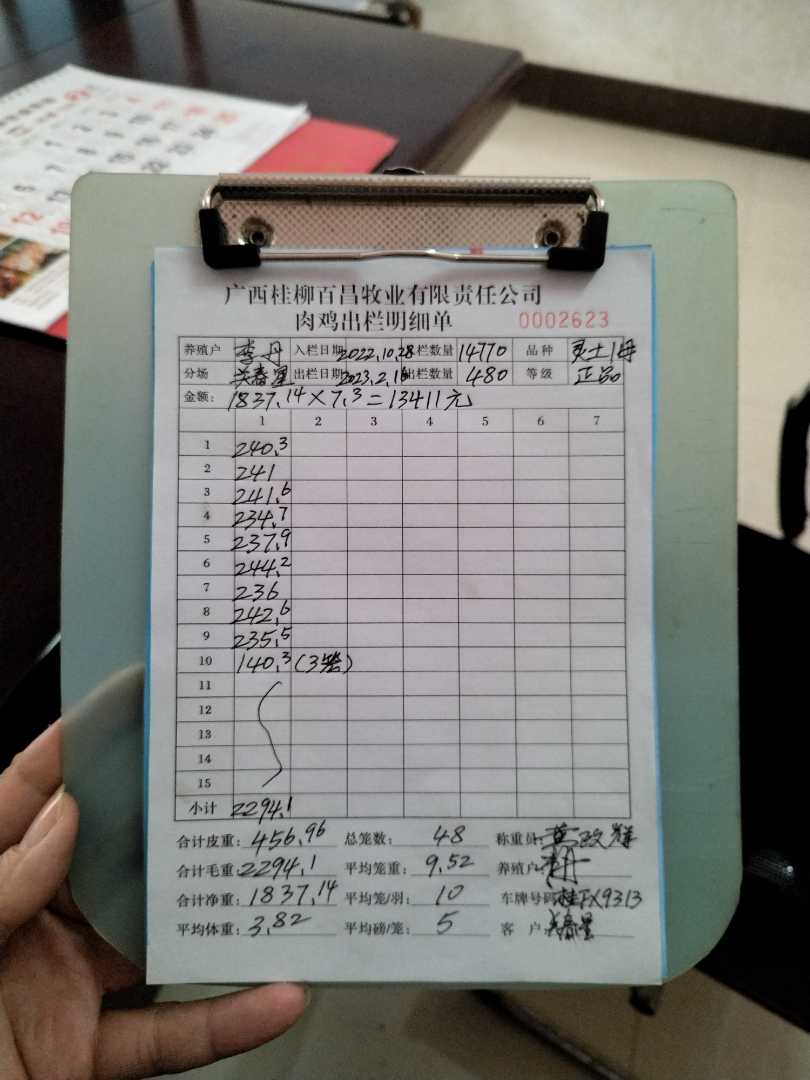 广西桂柳百昌牧业有限责任公司
肉鸡出栏明细单 0002623
养殖户 李丹 入栏日期 2022.10.28 栏数量 14770 品种 灵土1母
分场 关春星 出栏日期 2023.2.16 出栏数量 480 等级 正品
金额: 1837.14×7.3=13411元
1 2 3 4 5 6 7
1 240.3
2 241
3 241.6
4 234.7
5 237.9
6 244.2
7 236
8 242.6
9 235.5
10 140.3 (3笼)
11
12
13
14
15
小计 2294.1
合计皮重: 456.96 总笼数: 48 称重员: 政辉
合计毛重: 2294.1 平均笼重: 9.52 养殖户: 李丹
合计净重: 1837.14 平均笼/羽: 10 车牌号码 桂FX9313
平均体重: 3.82 平均磅/笼: 5 客户: 关春星